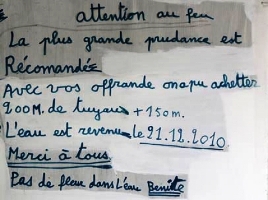 attention au feu
La plus grande prudance est
Récomandée
Avec vos offrande onapu achetter
200M. de tuyau + 150m.
L'eau est revenu le 21.12.2010
Merci à tous
Pas de fleur dans L'eau Benite